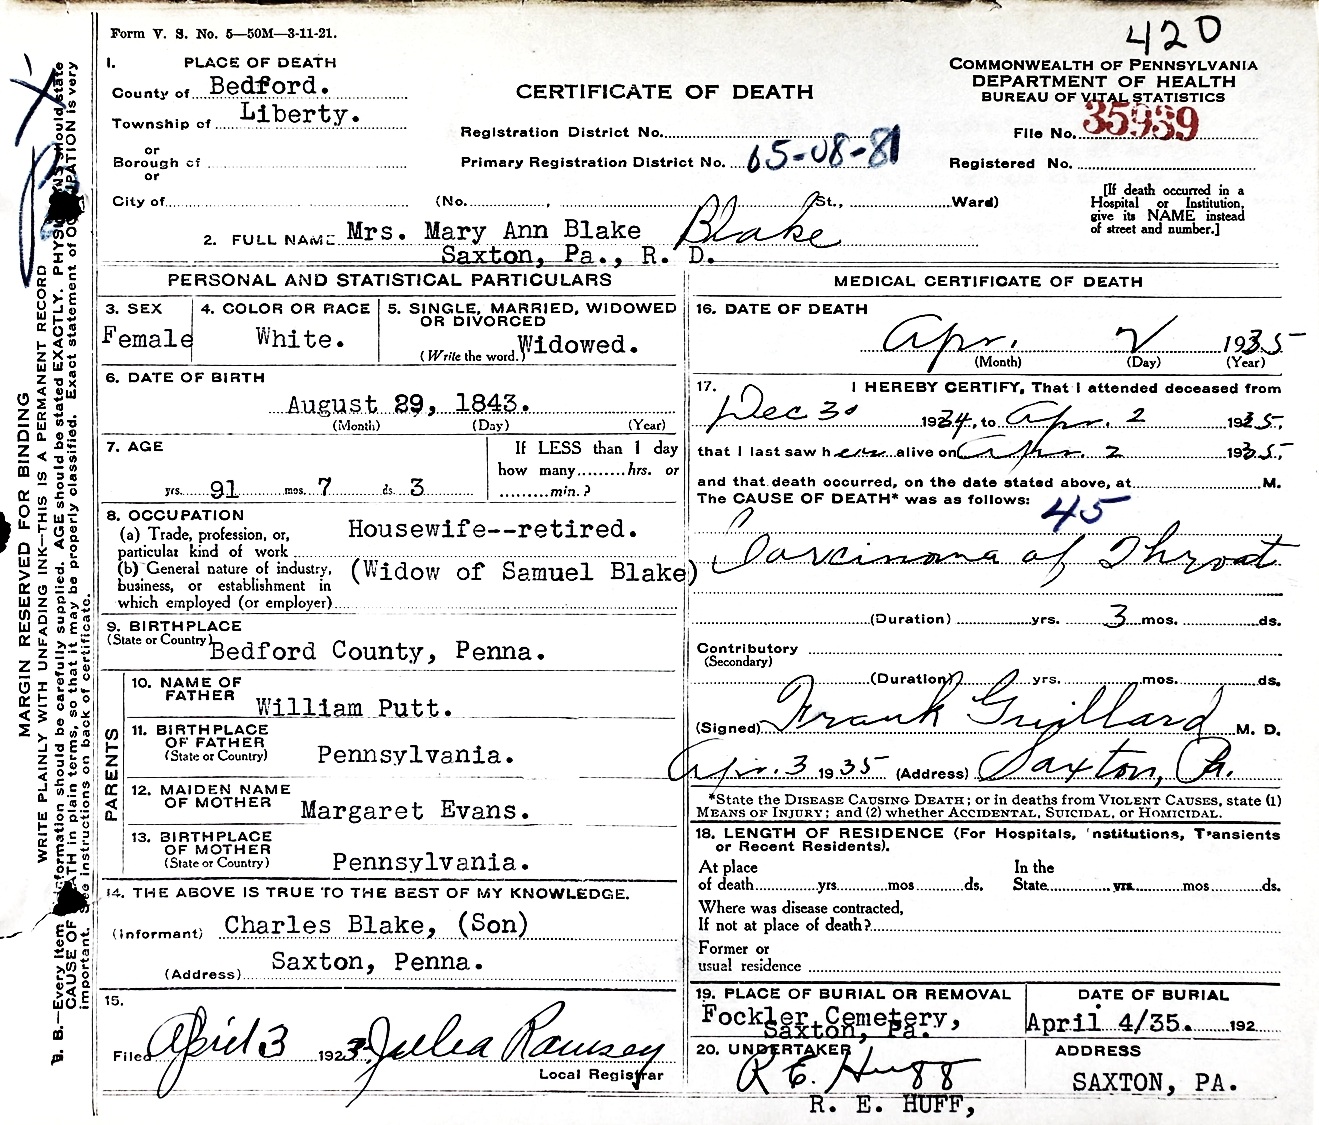 420
Form V. S. No. 5—50M—3-11-21.
1. PLACE OF DEATH
County of Bedford.
Township of Liberty.
or
Borough of
or
City of
CERTIFICATE OF DEATH
Registration District No.
Primary Registration District No. 05-08-81
(No. St., Ward)
COMMONWEALTH OF PENNSYLVANIA
DEPARTMENT OF HEALTH
BUREAU OF VITAL STATISTICS
File No. 35939
Registered No.
[If death occurred in a
Hospital or Institution,
give its NAME instead
of street and number.]
2. FULL NAME Mrs. Mary Ann Blake Blake
Saxton, Pa., R. D.
PERSONAL AND STATISTICAL PARTICULARS
3. SEX
Female
4. COLOR OR RACE
White.
5. SINGLE, MARRIED, WIDOWED
OR DIVORCED
(Write the word.) Widowed.
6. DATE OF BIRTH
August 29, 1843.
(Month) (Day) (Year)
7. AGE
yrs. 91 mos. 7 ds. 3
If LESS than 1 day
how many........hrs. or
.........min.?
8. OCCUPATION
(a) Trade, profession, or,
particular kind of work Housewife--retired.
(b) General nature of industry,
business, or establishment in
which employed (or employer)
(Widow of Samuel Blake)
9. BIRTHPLACE
(State or Country) Bedford County, Penna.
PARENTS
10. NAME OF
FATHER William Putt.
11. BIRTHPLACE
OF FATHER
(State or Country) Pennsylvania.
12. MAIDEN NAME
OF MOTHER Margaret Evans.
13. BIRTHPLACE
OF MOTHER
(State or Country) Pennsylvania.
14. THE ABOVE IS TRUE TO THE BEST OF MY KNOWLEDGE.
(Informant) Charles Blake, (Son)
(Address) Saxton, Penna.
15.
Filed April 3 1923 Julia Ramsey
Local Registrar
MEDICAL CERTIFICATE OF DEATH
16. DATE OF DEATH
Apr. 2 1935
(Month) (Day) (Year)
17. I HEREBY CERTIFY, That I attended deceased from
Dec 30 1934, to Apr. 2 1935,
that I last saw her alive on Apr. 2 1935,
and that death occurred, on the date stated above, at M.
The CAUSE OF DEATH* was as follows:
45
Carcinoma of Throat
(Duration) yrs. 3 mos. ds.
Contributory
(Secondary)
(Duration) yrs. mos. ds.
(Signed) Frank Guillard M. D.
Apr. 3 1935 (Address) Saxton, Pa.
*State the DISEASE CAUSING DEATH; or in deaths from VIOLENT CAUSES, state (1)
MEANS OF INJURY; and (2) whether ACCIDENTAL, SUICIDAL, or HOMICIDAL.
18. LENGTH OF RESIDENCE (For Hospitals, Institutions, Transients
or Recent Residents).
At place
of death yrs. mos ds.
In the
State yrs. mos ds.
Where was disease contracted,
If not at place of death?
Former or
usual residence
19. PLACE OF BURIAL OR REMOVAL
Fockler Cemetery,
Saxton, Pa.
DATE OF BURIAL
April 4/35. 192
20. UNDERTAKER
R E. Huff
R. E. HUFF,
ADDRESS
SAXTON, PA.
MARGIN RESERVED FOR BINDING
WRITE PLAINLY WITH UNFADING INK—THIS IS A PERMANENT RECORD
B. B.—Every item information should be carefully supplied. AGE should be stated EXACTLY. PHYSICIANS should state
CAUSE OF DEATH in plain terms, so that it may be properly classified. Exact statement of OCCUPATION is very
important. See instructions on back of certificate.